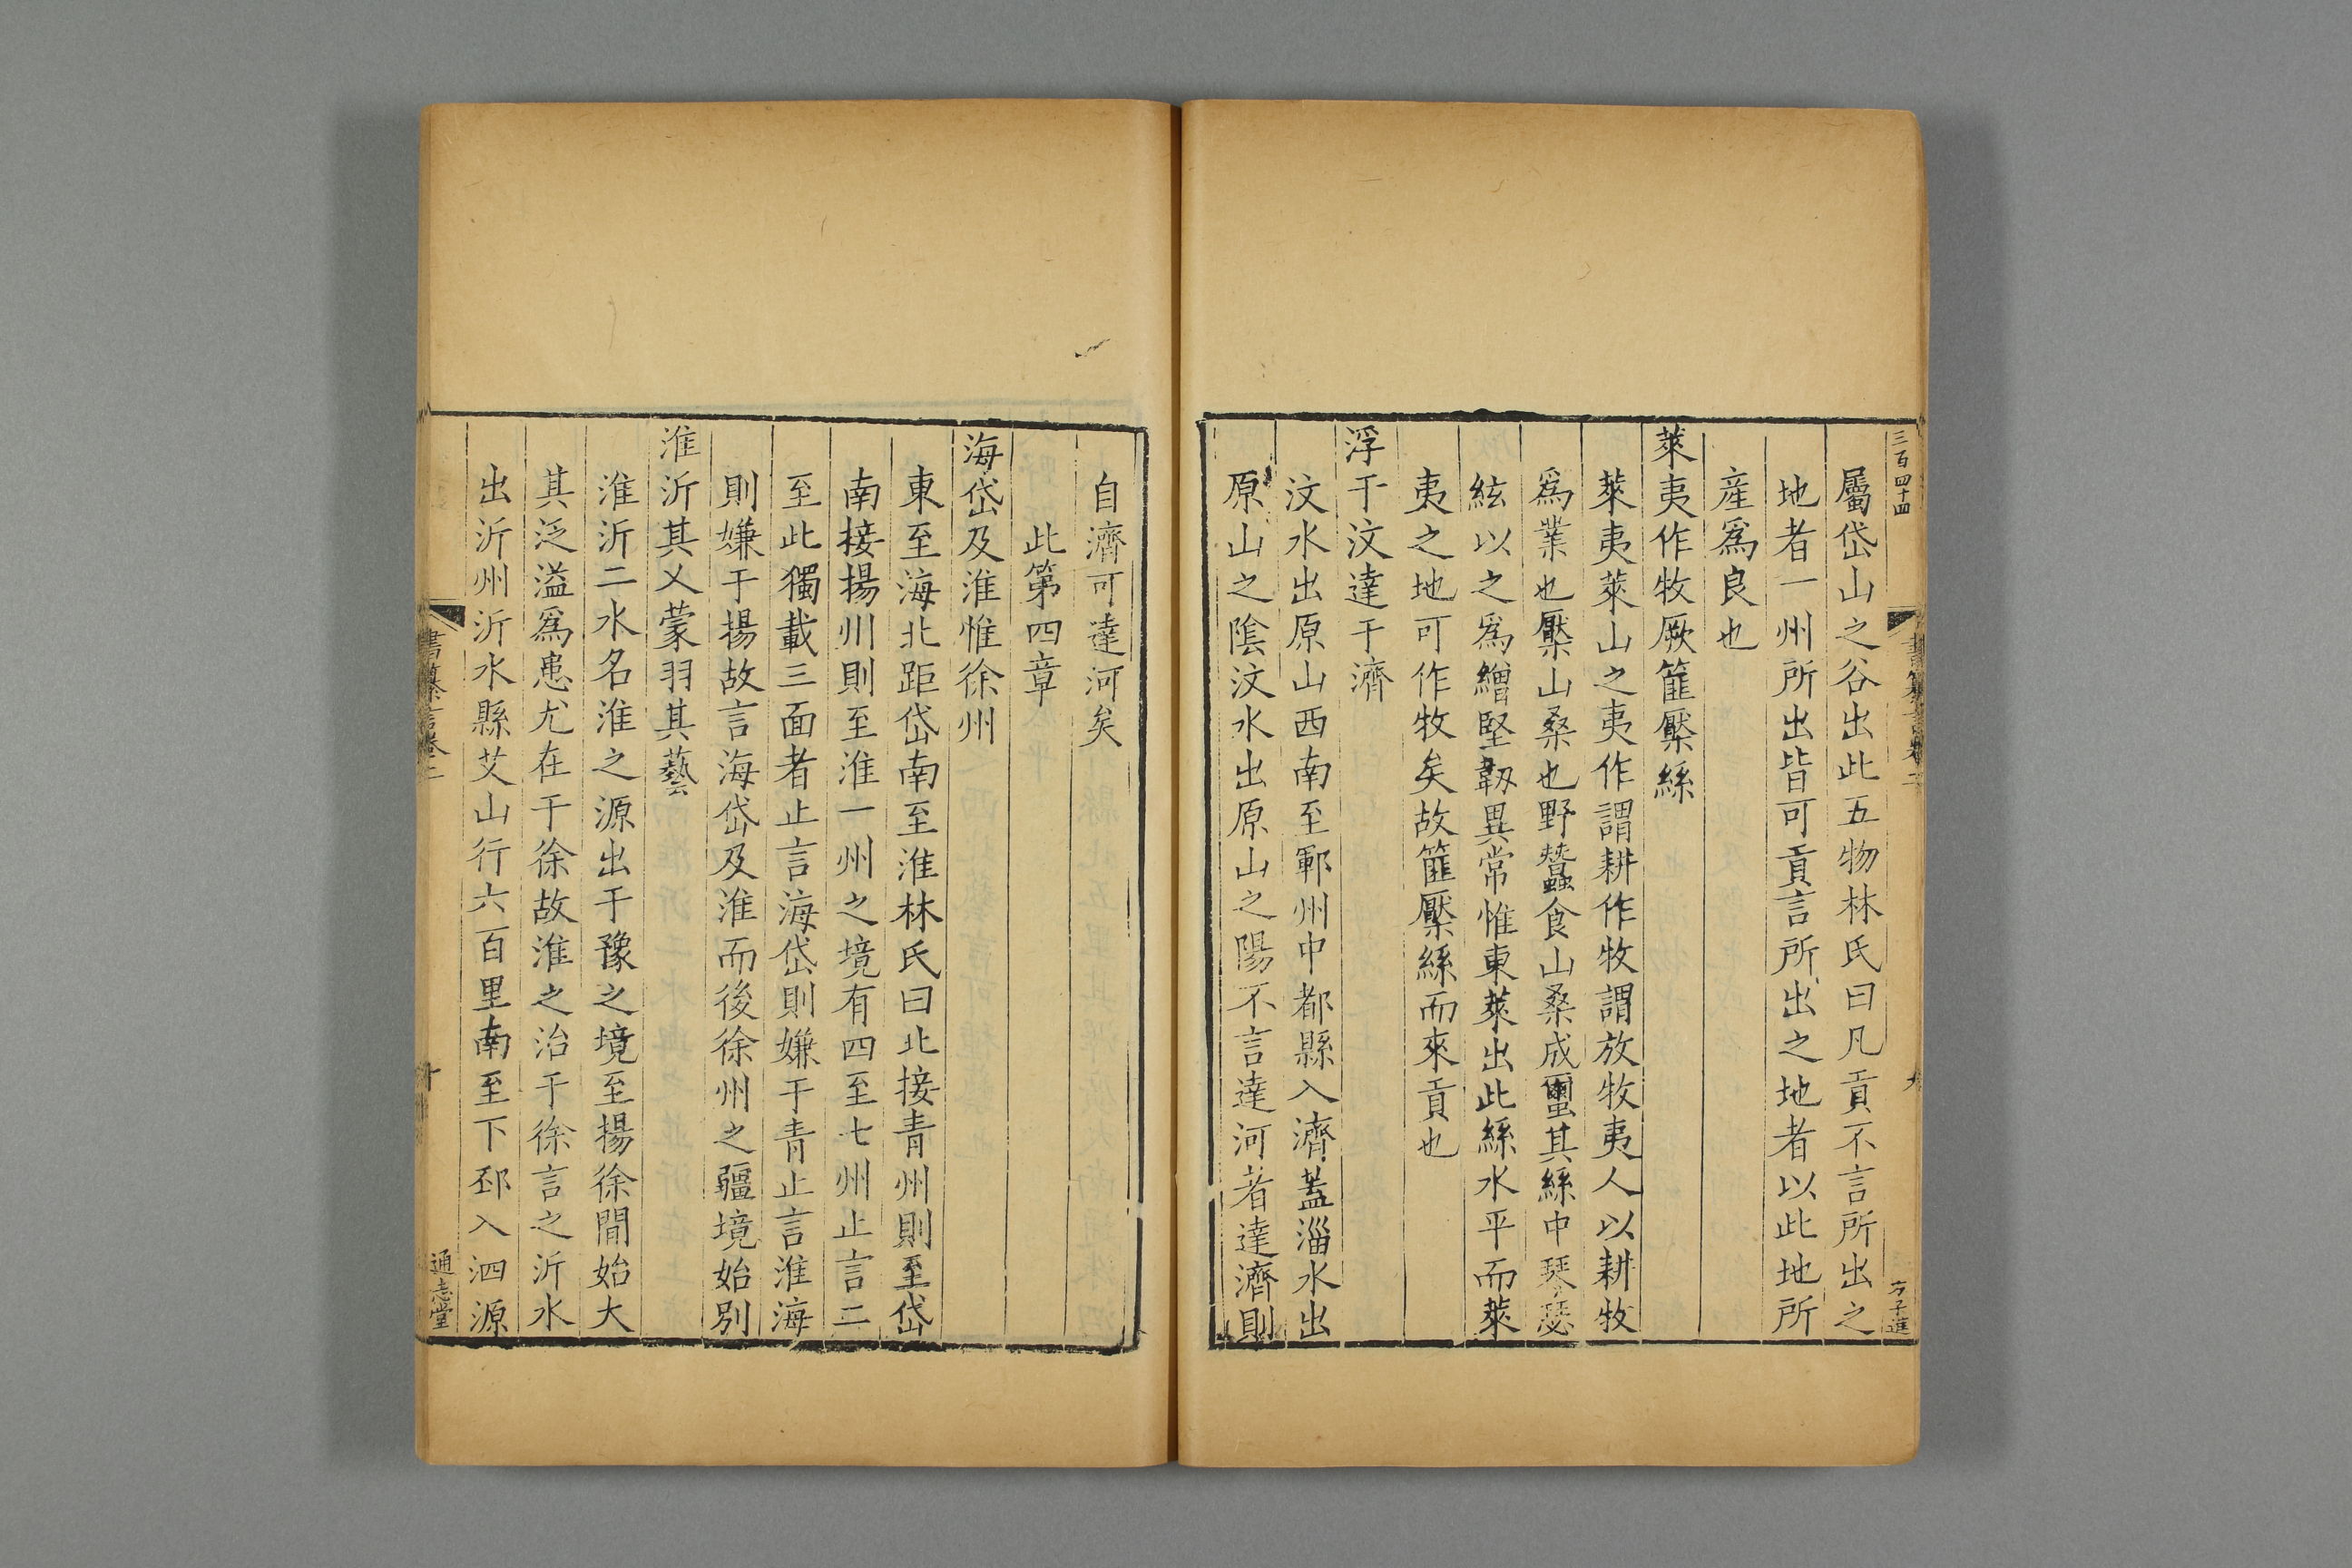 三百四十四
書纂言卷二
九
方子進
屬岱山之谷出此五物林氏曰凡貢不言所出之
地者一州所出皆可貢言所出之地者以此地所
産爲良也
萊夷作牧厥篚檿絲
萊夷萊山之夷作謂耕作牧謂放牧夷人以耕牧
爲業也檿山桑也野蠶食山桑成䌳其絲中琴瑟
絃以之爲繒堅韌異常惟東萊出此絲水平而萊
夷之地可作牧矣故篚檿絲而來貢也
浮于汶達于濟
汶水出原山西南至鄆州中都縣入濟蓋淄水出
原山之陰汶水出原山之陽不言達河者達濟則
自濟可達河矣
此第四章
海岱及淮惟徐州
東至海北距岱南至淮林氏曰北接青州則至岱
南接揚州則至淮一州之境有四至七州止言二
至此獨載三面者止言海岱則嫌于青止言淮海
則嫌于揚故言海岱及淮而後徐州之疆境始別
淮沂其乂蒙羽其藝
淮沂二水名淮之源出于豫之境至揚徐間始大
其泛溢爲患尤在于徐故淮之治于徐言之沂水
出沂州沂水縣艾山行六百里南至下邳入泗源
書纂言卷二
十
通志堂